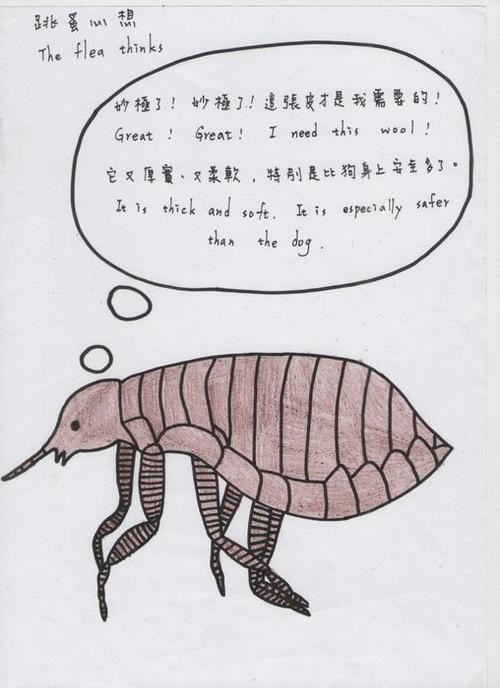 跳蚤心想
The flea thinks
妙極了！妙極了！這張皮才是我需要的！
Great! Great! I need this wool!
它又厚實、又柔軟，特別是比狗身上安全多了。
It is thick and soft. It is especially safer
than the dog.